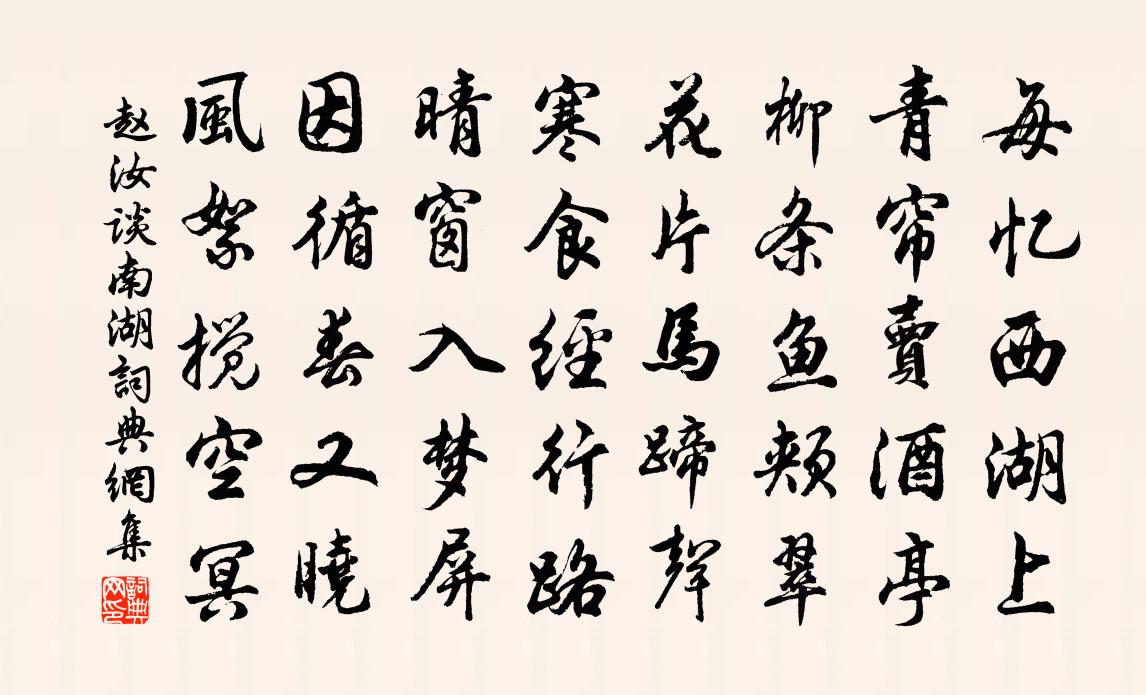 每忆西湖上
青帘賣酒亭
柳条鱼颊翠
花片馬蹄聲
寒食經行路
晴窗入梦屏
因循春又曉
風絮搅空冥
赵汝谈南湖詞典網集
詞典网印